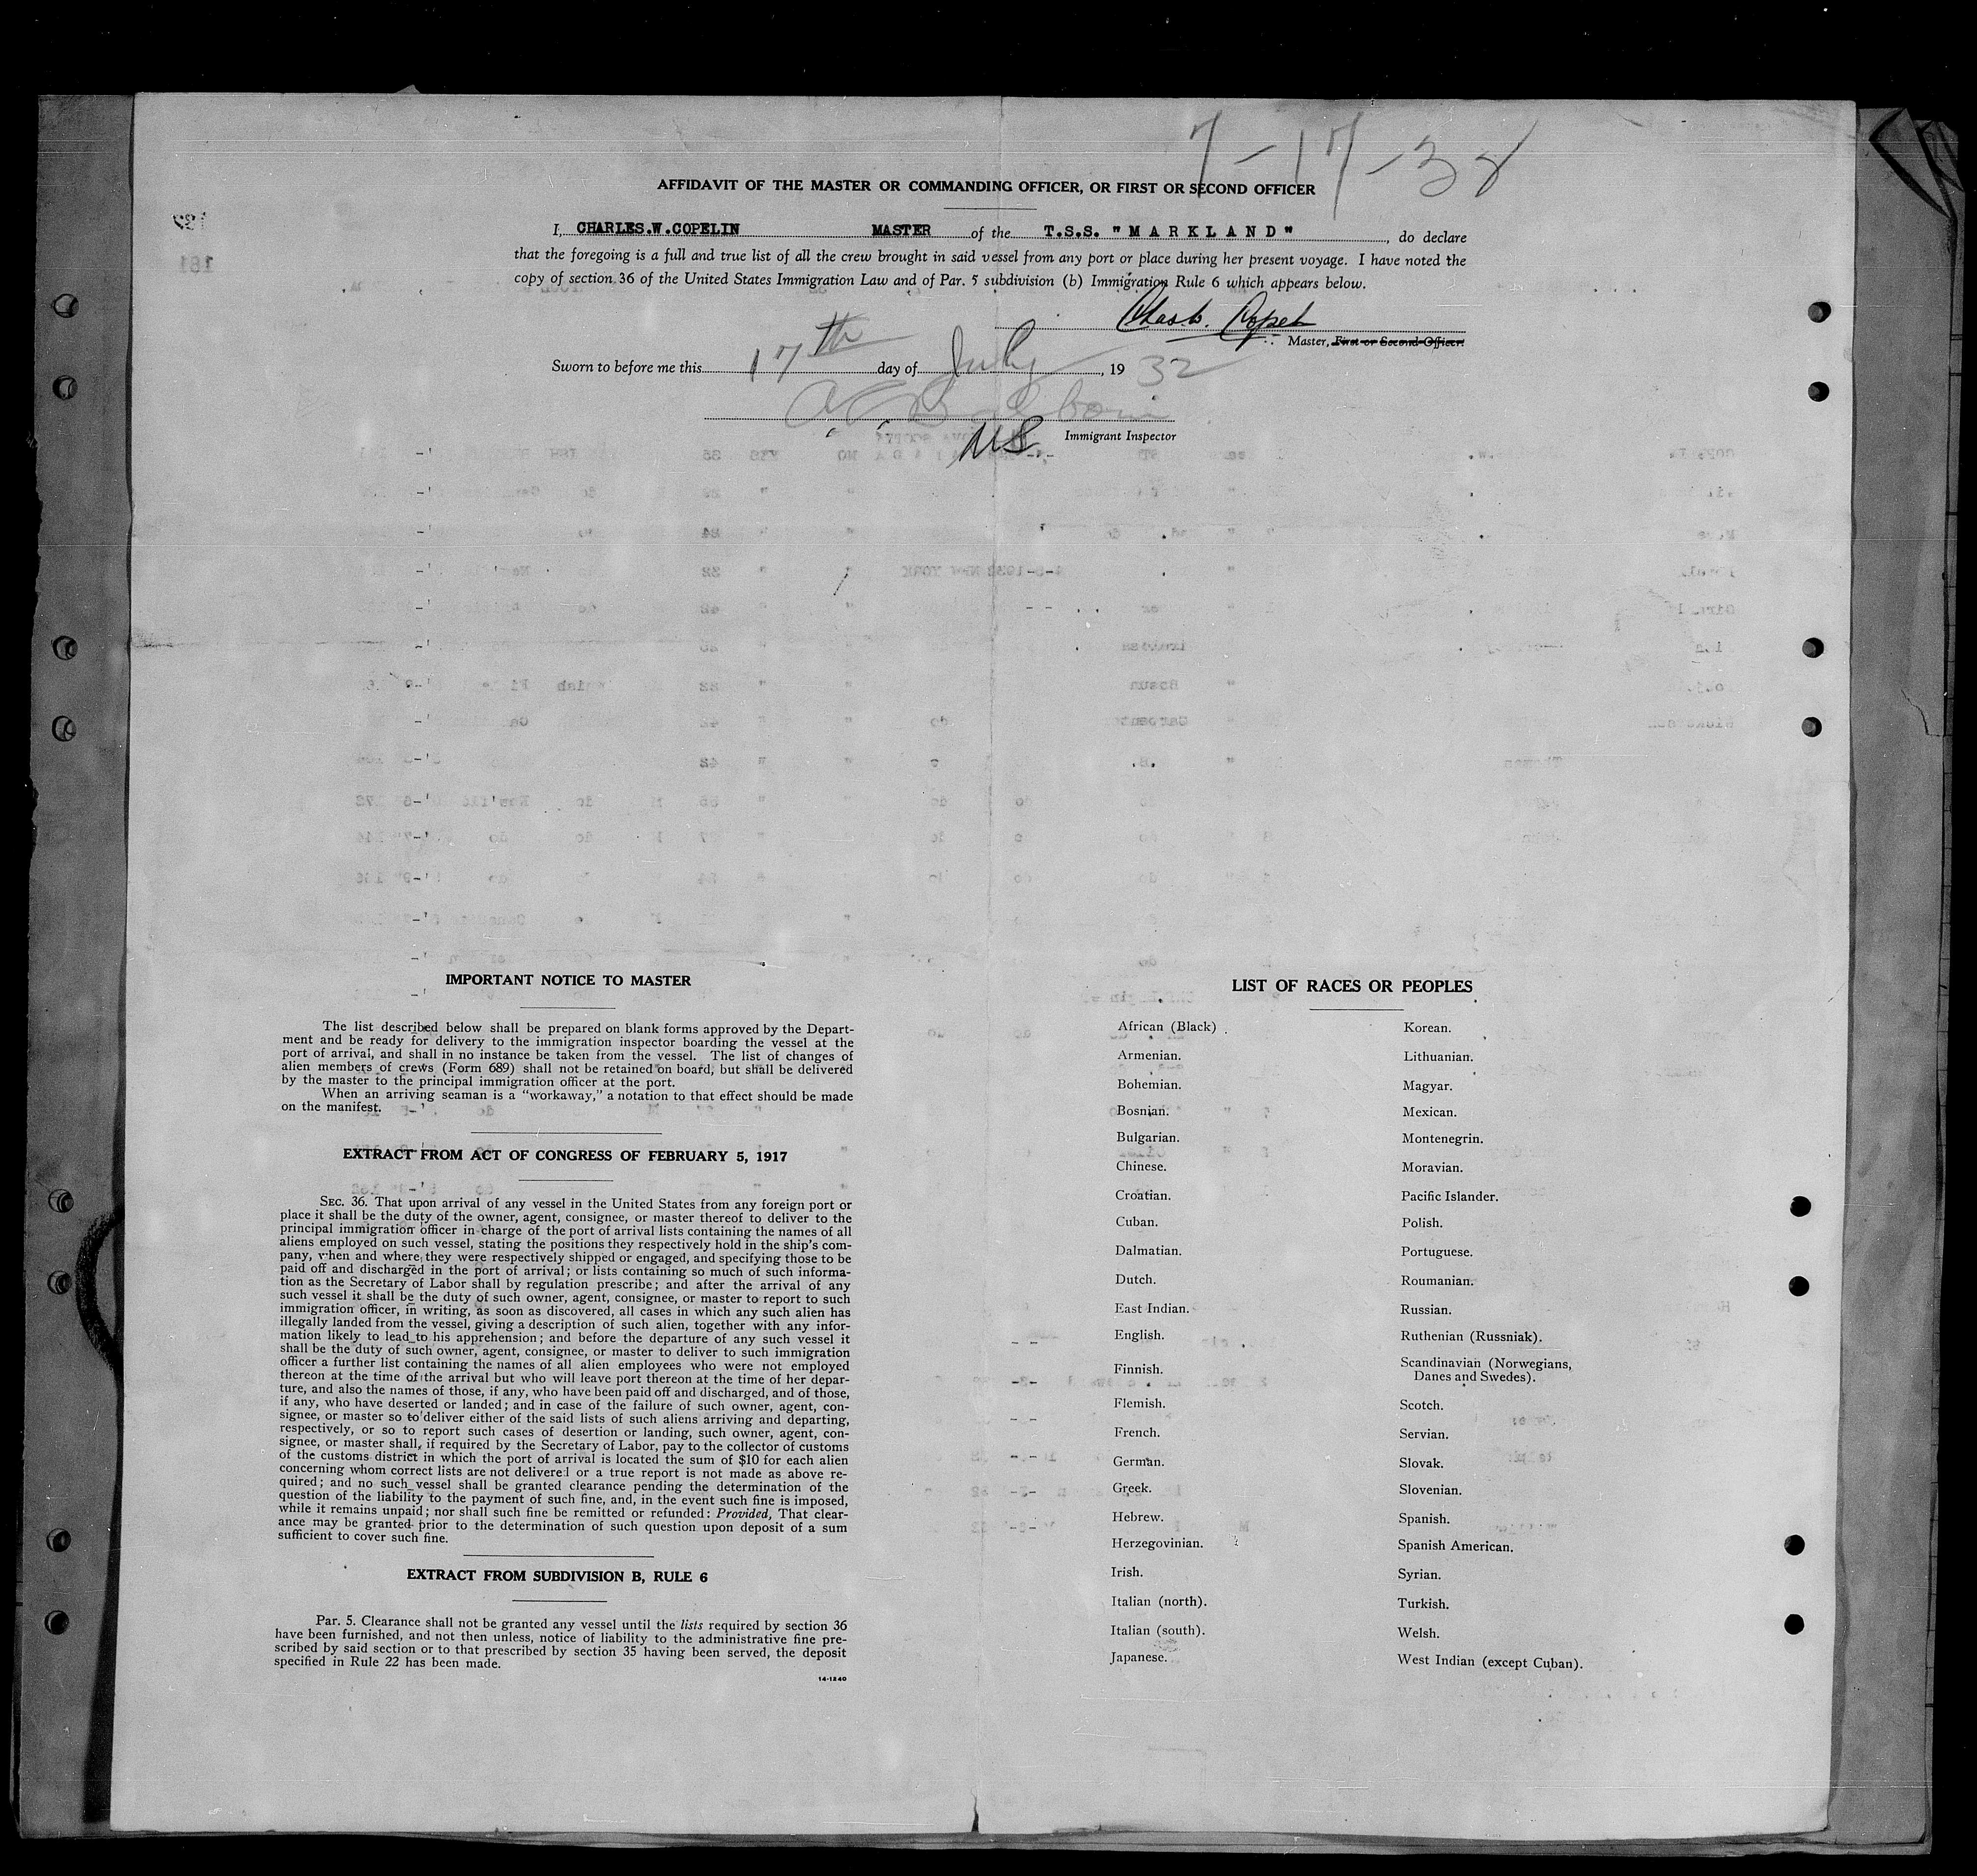 7-17-32
AFFIDAVIT OF THE MASTER OR COMMANDING OFFICER, OR FIRST OR SECOND OFFICER
I, CHARLES.W.COPELIN MASTER of the T.S.S. "MARKLAND", do declare
that the foregoing is a full and true list of all the crew brought in said vessel from any port or place during her present voyage. I have noted the
copy of section 36 of the United States Immigration Law and of Par. 5 subdivision (b) Immigration Rule 6 which appears below.
Master, First or Second Officer.
Sworn to before me this 17th day of July, 19 32
Immigrant Inspector
IMPORTANT NOTICE TO MASTER
The list described below shall be prepared on blank forms approved by the Depart-
ment and be ready for delivery to the immigration inspector boarding the vessel at the
port of arrival, and shall in no instance be taken from the vessel. The list of changes of
alien members of crews (Form 689) shall not be retained on board, but shall be delivered
by the master to the principal immigration officer at the port.
When an arriving seaman is a "workaway," a notation to that effect should be made
on the manifest.
EXTRACT FROM ACT OF CONGRESS OF FEBRUARY 5, 1917
SEC. 36. That upon arrival of any vessel in the United States from any foreign port or
place it shall be the duty of the owner, agent, consignee, or master thereof to deliver to the
principal immigration officer in charge of the port of arrival lists containing the names of all
aliens employed on such vessel, stating the positions they respectively hold in the ship's com-
pany, when and where they were respectively shipped or engaged, and specifying those to be
paid off and discharged in the port of arrival; or lists containing so much of such informa-
tion as the Secretary of Labor shall by regulation prescribe; and after the arrival of any
such vessel it shall be the duty of such owner, agent, consignee, or master to report to such
immigration officer, in writing, as soon as discovered, all cases in which any such alien has
illegally landed from the vessel, giving a description of such alien, together with any infor-
mation likely to lead to his apprehension; and before the departure of any such vessel it
shall be the duty of such owner, agent, consignee, or master to deliver to such immigration
officer a further list containing the names of all alien employees who were not employed
thereon at the time of the arrival but who will leave port thereon at the time of her depar-
ture, and also the names of those, if any, who have been paid off and discharged, and of those,
if any, who have deserted or landed; and in case of the failure of such owner, agent, con-
signee, or master so to deliver either of the said lists of such aliens arriving and departing,
respectively, or so to report such cases of desertion or landing, such owner, agent, con-
signee, or master shall, if required by the Secretary of Labor, pay to the collector of customs
of the customs district in which the port of arrival is located the sum of $10 for each alien
concerning whom correct lists are not delivered or a true report is not made as above re-
quired; and no such vessel shall be granted clearance pending the determination of the
question of the liability to the payment of such fine, and, in the event such fine is imposed,
while it remains unpaid; nor shall such fine be remitted or refunded: Provided, That clear-
ance may be granted prior to the determination of such question upon deposit of a sum
sufficient to cover such fine.
EXTRACT FROM SUBDIVISION B, RULE 6
Par. 5. Clearance shall not be granted any vessel until the lists required by section 36
have been furnished, and not then unless, notice of liability to the administrative fine pre-
scribed by said section or to that prescribed by section 35 having been served, the deposit
specified in Rule 22 has been made.
14-1240
LIST OF RACES OR PEOPLES
African (Black)
Armenian.
Bohemian.
Bosnian.
Bulgarian.
Chinese.
Croatian.
Cuban.
Dalmatian.
Dutch.
East Indian.
English.
Finnish.
Flemish.
French.
German.
Greek.
Hebrew.
Herzegovinian.
Irish.
Italian (north).
Italian (south).
Japanese.
Korean.
Lithuanian.
Magyar.
Mexican.
Montenegrin.
Moravian.
Pacific Islander.
Polish.
Portuguese.
Roumanian.
Russian.
Ruthenian (Russniak).
Scandinavian (Norwegians,
Danes and Swedes).
Scotch.
Servian.
Slovak.
Slovenian.
Spanish.
Spanish American.
Syrian.
Turkish.
Welsh.
West Indian (except Cuban).